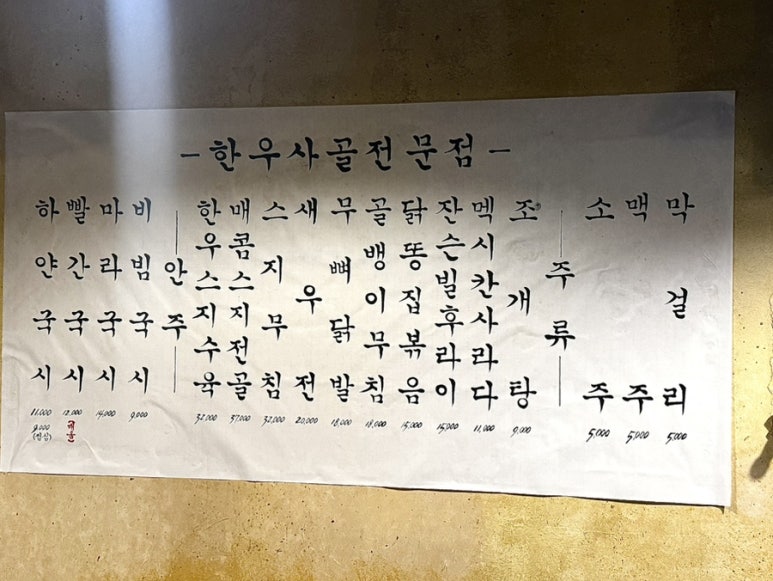 - 한우사골전문점 -
하얀국시
11,000
9,000
(점심)
빨간국시
12,000
마라국시
14,000
비빔국시
9,000
안주
한우스지수육
32,000
매콤스지전골
37,000
스지무침
32,000
새우전
20,000
무뼈닭발
18,000
골뱅이무침
18,000
닭똥집볶음
15,000
잔슨빌후라이
15,000
멕시칸사라다
11,000
조개탕
9,000
주류
소주
5,000
맥주
5,000
막걸리
5,000